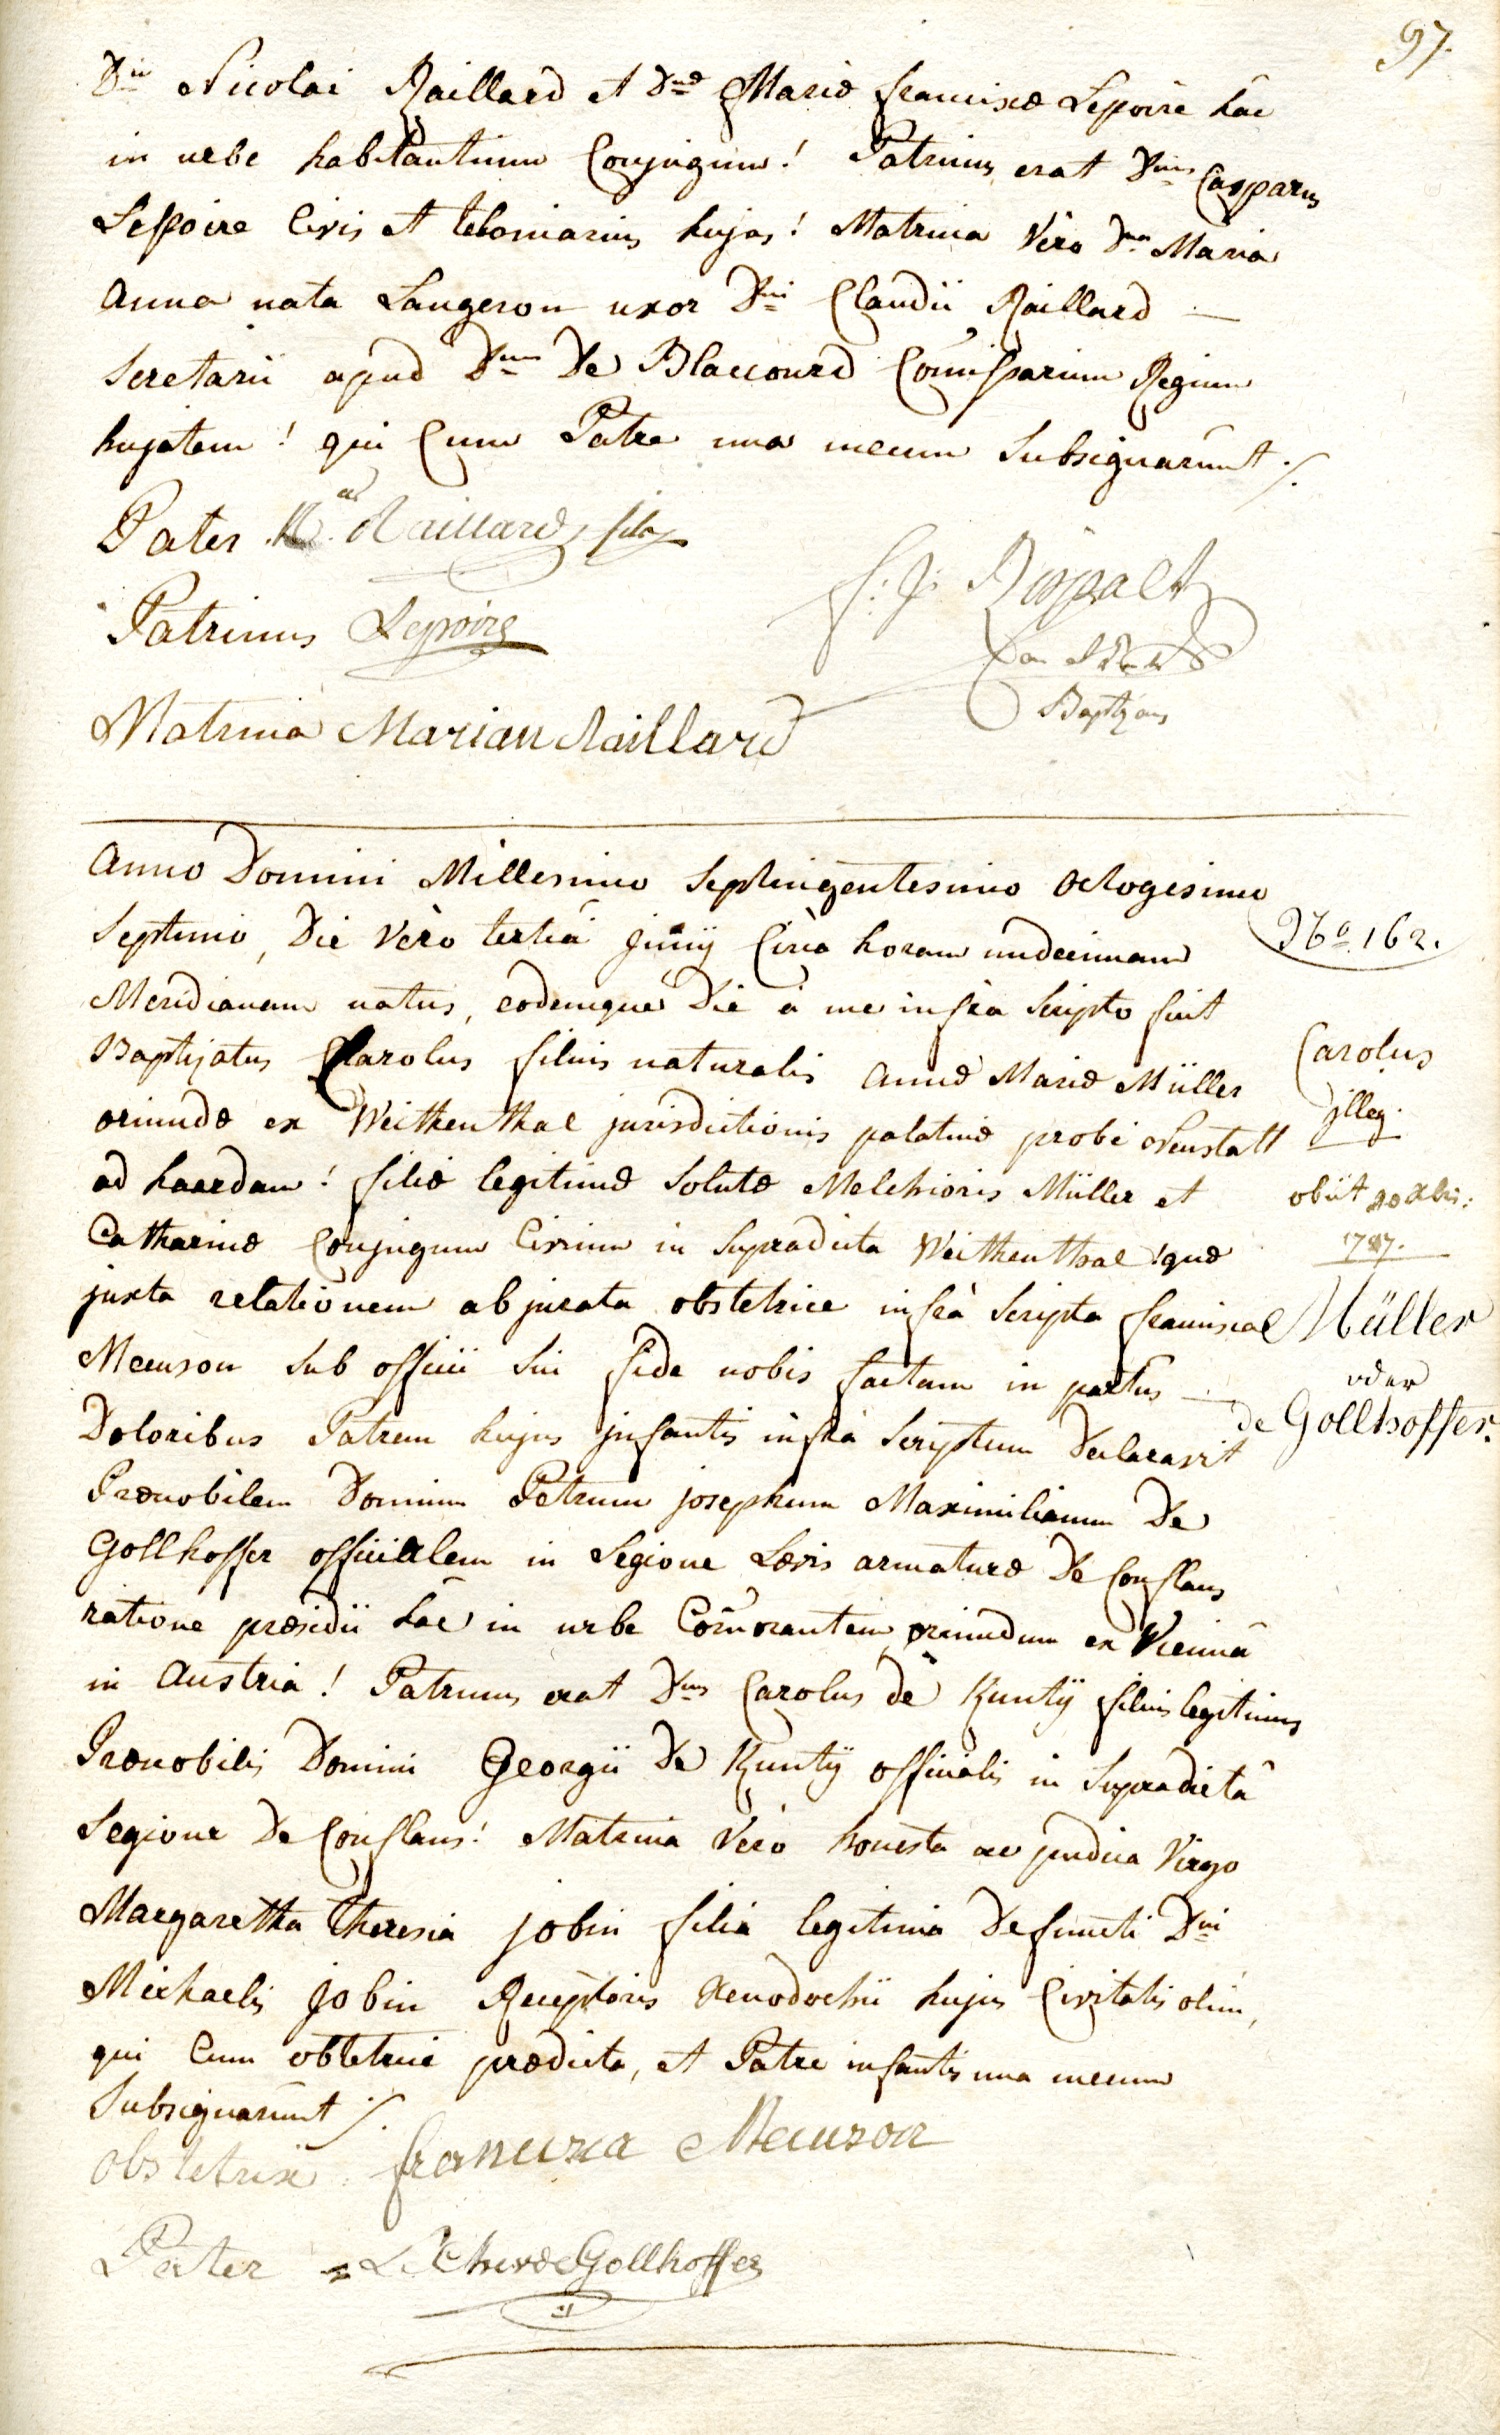 97.
Dni Nicolai Raillard et Dnæ Mariæ franciscæ Lepoire hac
in urbe habitantium Conjugum! Patrinus erat Dnus Casparus
Lepoire Civis et teloniarius hujas! Matrina Vero Dna Maria
Anna nata Langeron uxor Dni Claudii Raillard —
Secretarii apud Dnum De Blaucourd Comissarium Regium
hujatem! qui Cum Patre una mecum Subsignarunt ./.
Pater Raillard fils
Patrinus Lepoire
Matrina Marian Raillard
Baptizans
Anno Domini Millesimo Septingentesimo Octogesimo
Septimo, Die Vero tertiâ Junÿ Circa horam undecimam
No. 162.
Meridianam natus, eodemque Die à me infra Scripto fuit
Baptizatus Carolus filius naturalis Annæ Mariæ Müller
Carolus
oriundæ ex Weithenthal jurisdictionis palatinæ probè Neustatt
illeg.
ad haardam! filiæ legitimæ Solutæ Melchioris Müller et
obiit 20 Xbris:
Catharinæ Conjugum Civium in Supradicta Weithenthal! quæ
1787.
juxta relationem ab jurata obstetrice infrà Scripta francisca
Müller
Meunson Sub officii Sui fide nobis factam in partus —
oder
Doloribus Patrem hujus infantis infrà Scriptum Declaravit
de Gollhoffer.
Prænobilem Dominum Petrum josephum Maximilianum De
Gollhoffer officialem in Legione Lævis armaturæ De Conflans
ratione præsidii hac in urbe Com̃orantem, oriundum ex Viennâ
in Austria! Patrinus erat Dnus Carolus de Kuntÿ filius legitimus
Prænobilis Domini Georgii De Kuntÿ officialis in Supradictâ
Legione De Conflans! Matrina Verò honesta ac pudica Virgo
Margaretha Theresia jobin filia legitima Defuncti Dni
Michaelis Jobin Receptoris Xenodochii hujus Civitatis olim,
qui Cum obstetrice prædicta, et Patre infantis una mecum
Subsignarunt ./.
Obstetrix francisca Meunson
Pater = Le Cher de Gollhoffer